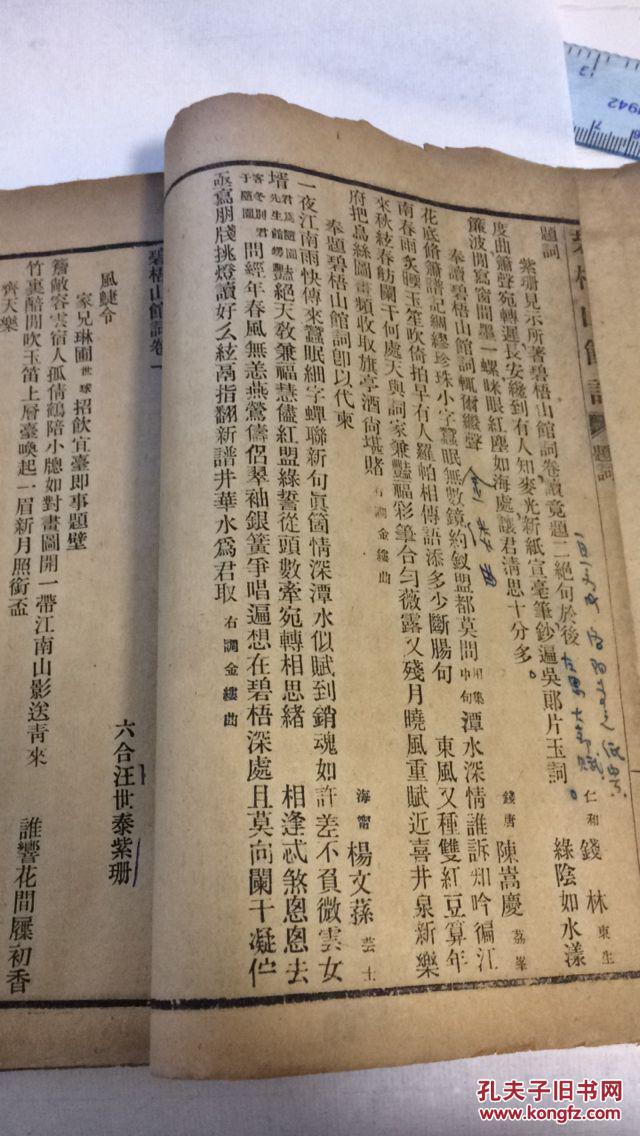 碧梧山館詞 題詞
題詞
紫珊見示所著碧梧山館詞卷讀竟題二絕句於後 仁和 錢林 東生
度曲簫聲宛轉遲長安纔到有人知麥光新紙宣毫筆鈔遍吳郎片玉詞 綠陰如水漾
簾波閒寫窗間墨一螺眯眼紅塵如海處讓君清思十分多
奉讀碧梧山館詞輒爾繼聲 錢唐 陳嵩慶 荔峯
金縷曲
花底脩簫譜記綢繆珍珠小字蠶眠無數鏡約釵盟都莫問 用集中句 潭水深情誰訴知吟徧江
南春雨炙輭玉笙吹倚拍早有人羅帕相傳語添多少斷腸句 東風又種雙紅豆算年
來秋絃春舫闌干何處天與詞家兼豔福彩筆合勻薇露又殘月曉風重賦近喜井泉新樂
府把烏絲圖畫頻收取旗亭酒尙堪賭 右調金縷曲
奉題碧梧山館詞卽以代柬 海甯 楊文蓀 芸士
一夜江南雨快傳來蠶眠細字蟬聯新句眞箇情深潭水似賦到銷魂如許差不負微雲女
壻 君爲隨園先生館甥 豔絕天敎兼福慧儘紅盟綠誓從頭數牽宛轉相思緒 相逢忒煞悤悤去
客冬別君于隨園 問經年春風無恙燕鶯儔侶翠袖銀簧爭唱遍想在碧梧深處且莫向闌干凝伫
亟寫朋牋挑燈讀好么絃鬲指翻新譜井華水爲君取 右調金縷曲
碧梧山館詞卷一
六合汪世泰紫珊
風蜨令
家兄琳圃 世球 招飲宜臺卽事題壁
簷敞容雲宿人孤倩鶴陪小牕如對畫圖開一帶江南山影送靑來 誰響花間屧初香
竹裏醅閒吹玉笛上層臺喚起一眉新月照銜盃
齊天樂
13
1942
孔夫子旧书网
www.kongfz.com